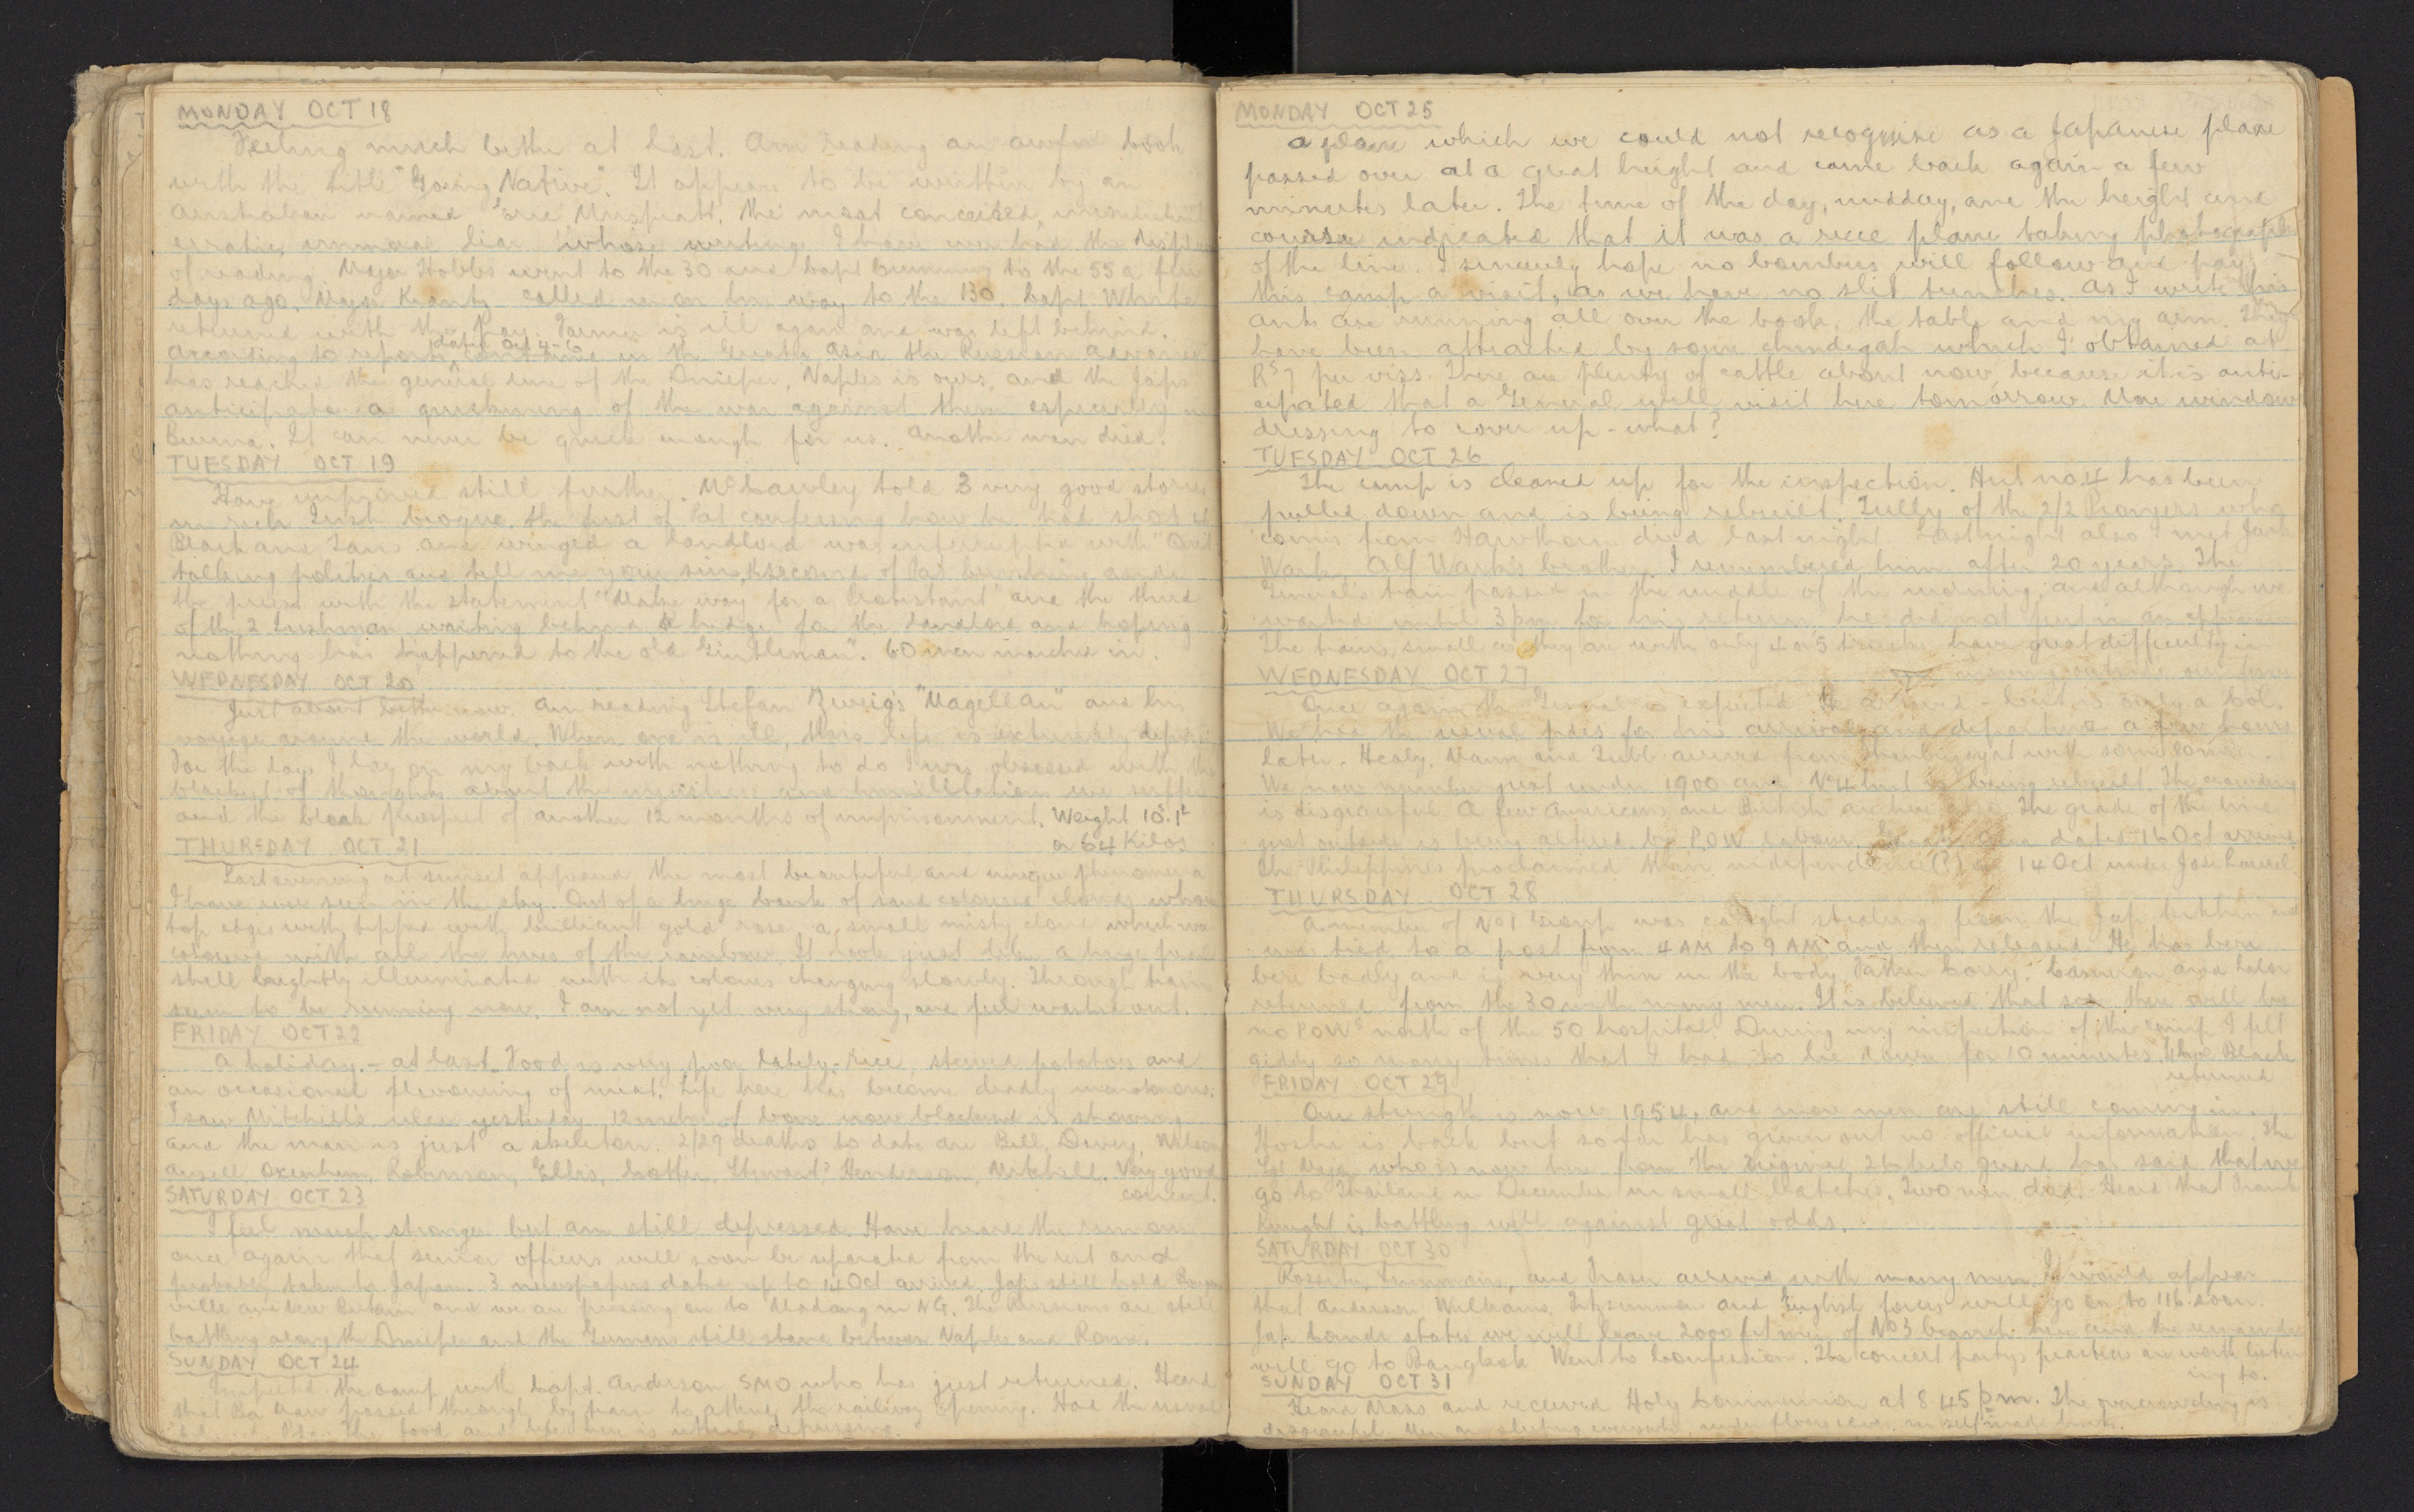 MONDAY OCT 18
Feeling much better at last. Am reading an awful book
with the title "Going Native". It appears to be written by an
Australian named Eric Muspratt, the most conceited,
erratic, immoral liar whose writings I have ever had the
of reading. Major Hobbs went to the 30 and Capt Cumming to the 55 a few
days ago. Major Krantz called in on his way to the 130. Capt White
returned with the pay. Farmer is ill again and was left behind.
According to reports, dated Oct 4-6 in the Greater Asia the Russian advance
has reached the general line of the Dnieper, Naples is ours, and the Japs
anticipate a quickening of the war against them especially in
Burma. It can never be quick enough for us. Another man died.
TUESDAY OCT 19
Have improved still further. McCawley told 3 very good stories
in rich Irish brogue. The first of Pat confessing how he had shot 4
Black and Tans and winged a landlord was interrupted with "Quit
talking politics and tell me your sins", second of Pat brushing aside
the priest with the statement "Make way for a Protestant" and the third
of the 2 Irishmen waiting behind a hedge for the landlord and hoping
nothing has happened to the old Gintleman". 60 men marched in.
WEDNESDAY OCT 20
Just about better now. Am reading Stefan Zweig's "Magellan" and his
voyage around the world. When one is ill, this life is extremely
For the days I lay on my back with nothing to do I was obsessed with the
blackest of thoughts about the injustices and humiliation we suffer
and the bleak prospect of another 12 months of imprisonment. Weight 10s.1l
or 64 Kilos
THURSDAY OCT 21
Last evening at sunset appeared the most beautiful and unique phenomena
I have ever seen in the sky. Out of a huge bank of sand coloured clouds whose
top edges were tipped with brilliant gold rose a small misty cloud which was
coloured with all the hues of the rainbow. It took just like a huge pearl
shell brightly illuminated with its colours changing slowly. Through trains
seem to be running now. I am not yet very strong, and feel washed out.
FRIDAY OCT 22
A holiday - at last. Food is very poor lately, - rice, stewed potatoes and
an occasional flavouring of meat. Life here has become deadly monotonous.
I saw Mitchell's ulcer yesterday. 12 inches of bone now blackened is showing
and the man is just a skeleton. 2/29 deaths to date are Bell, Dewey, Wilson
Ansell, Oxenham, Robinson, Ellis, Lother, Steward? Henderson, Mitchell. Very good
concert.
SATURDAY OCT 23
I feel much stronger but am still depressed. Have heard the rumour
once again that senior officers will soon be separated from the rest and
probably taken to Japan. 3 newspapers dated up to 14 Oct arrived. Japs still hold Bougain
ville and New Britain and we are pressing on to Madang in NG. The Russians are still
battling along the Dnieper and the Germans still stand between Naples and Rome.
SUNDAY OCT 24
Inspected the camp with Capt. Anderson SMO who has just returned. Heard
that Ba Maw passed through by train to attend the railway opening. Had the usual
The food and life here is utterly depressing.
MONDAY OCT 25
A plane which we could not recognise as a Japanese plane
passed over at a great height and came back again a few
minutes later. The time of the day, midday, and the height and
course indicated that it was a recce plane taking photographs
of the line. I sincerely hope no bombers will follow and pay
this camp a visit, as we have no slit trenches. As I write this
ants are running all over the book, the table and my arm. They
have been attracted by some chindegah which I obtained at
Rs 7 per viss. There are plenty of cattle about now, because it is anti-
cipated that a General will visit here tomorrow. More window
dressing to cover up - what?
TUESDAY OCT 26
The camp is cleaned up for the inspection. Hut no.4 has been
pulled down and is being rebuilt. Tully of the 2/2 Pioneers who
comes from Hawthorn died last night. Last night also I met Jack
Wark, Alf Wark's brother. I remembered him after 20 years. The
General's train passed in the middle of the morning, and although we
waited until 3pm for his return he did not put in an appearance
The trains, small as they are with only 4 or 5 trucks have great difficulty in
moving outside our lines
WEDNESDAY OCT 27
Once again the General is expected. He arrived - but is only a Col.
We had the usual pides for his arrival and departure a few hours
later. Healy, Mann and Tubb arrived from Thanbyuzayat with some
We now number just under 1900 and No 4 hut is being rebuilt. The crowding
is disgraceful. A few Americans and British are here also. The grade of the line
just outside is being altered by POW labour. Greater Asia dated 16 Oct arrived.
The Philippines proclaimed their independence(?) on 14 Oct under Jose Laurel.
THURSDAY OCT 28
A member of No 1 Group was caught stealing from the Jap kitchen and
was tied to a post from 4 AM to 9 AM and then released. He has beri
beri badly and is very thin in the body. Father Corry, Cameron and
returned from the 30 with many men. It is believed that soon there will be
no POWs north of the 50 hospital. During my inspection of the camp I felt
giddy so many times that I had to lie down for 10 minutes. Black
returned
FRIDAY OCT 29
Our strength is now 1954, and more men are still coming in.
Hoshi is back but so far has given out no official information. The
Sgt Major who is now here from the original 26 kilo guard has said that we
go to Thailand in December in small batches. Two men died. Heard that Frank
Knight is battling well against great odds.
SATURDAY OCT 30
Rossiter, and Fraser arrived with many men. It would appear
that Anderson Williams, Fitzsimmons and English forces will go on to 116 soon.
Jap Comdr states we will leave 2000 fit men of No 3 branch here and the remainder
will go to Bangkok. Went to Confession. The concert party's practices are worth listen
ing to.
SUNDAY OCT 31
Heard Mass and received Holy Communion at 8 45 pm. The overcrowding is
disgraceful. Men are sleeping everywhere, under floors even, in self made huts.